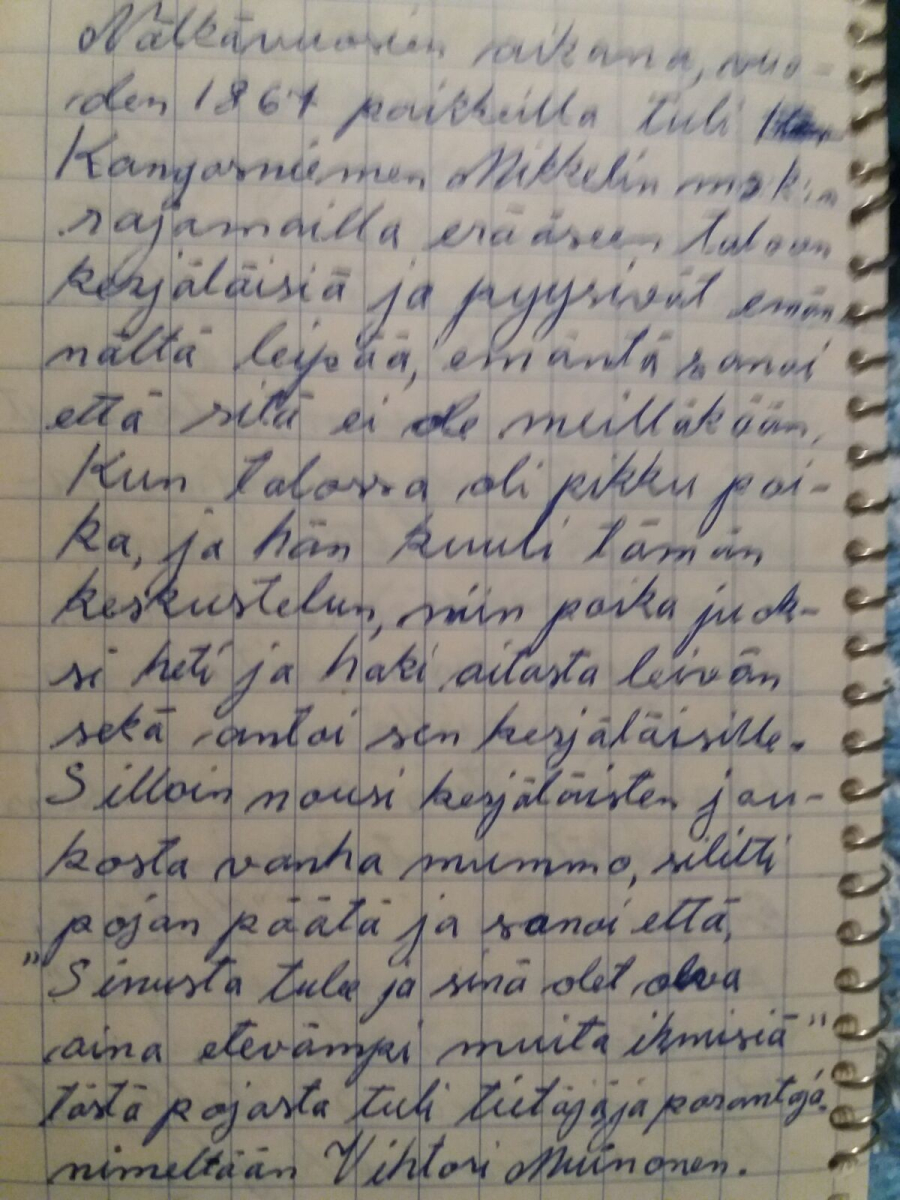 Nälkävuosien aikana, vuo-
den 1867 paikkeilla tuli
Kangasniemen Mikkelin mlk:n
rajamailla erääseen taloon
kerjäläisiä ja pyysivät emän-
nältä leipää, emäntä sanoi
että sitä ei ole meilläkään,
Kun talossa oli pikku poi-
ka, ja hän kuuli tämän
keskustelun, niin poika juok-
si heti ja haki aitasta leivän
sekä antoi sen kerjäläisille.
Silloin nousi kerjäläisten jou-
kosta vanha mummo, silitti
pojan päätä ja sanoi että,
"Sinusta tulee ja sinä olet oleva
aina etevämpi muita ihmisiä"
tästä pojasta tuli tietäjä ja parantaja,
nimeltään Vihtori Miinonen.